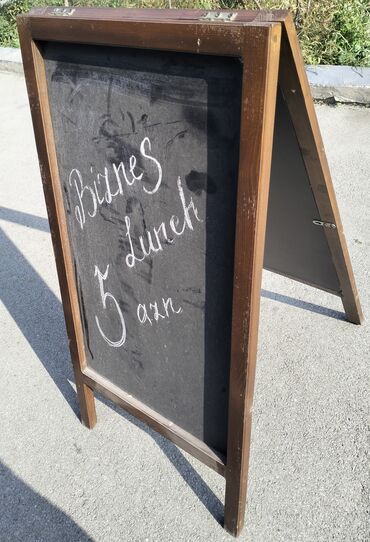 Biznes
Lunch
5 azn